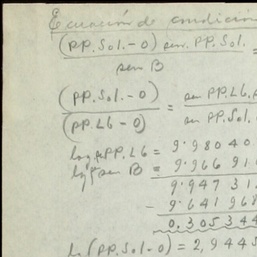 Ecuación de condición
(PP.Sol.-0) sen. PP.Sol. =
sen B
(PP.Sol.-0) = sen PP.L6.
(PP.L6-0) sen PP.Sol.
log PP.L6 = 9.98040
log sen B = 9.96691
9.94731
- 9.641968
0.305344
(PP.Sol-0) = 2,9445